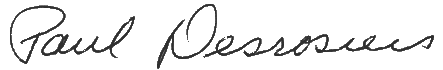 Paul Desrosiers